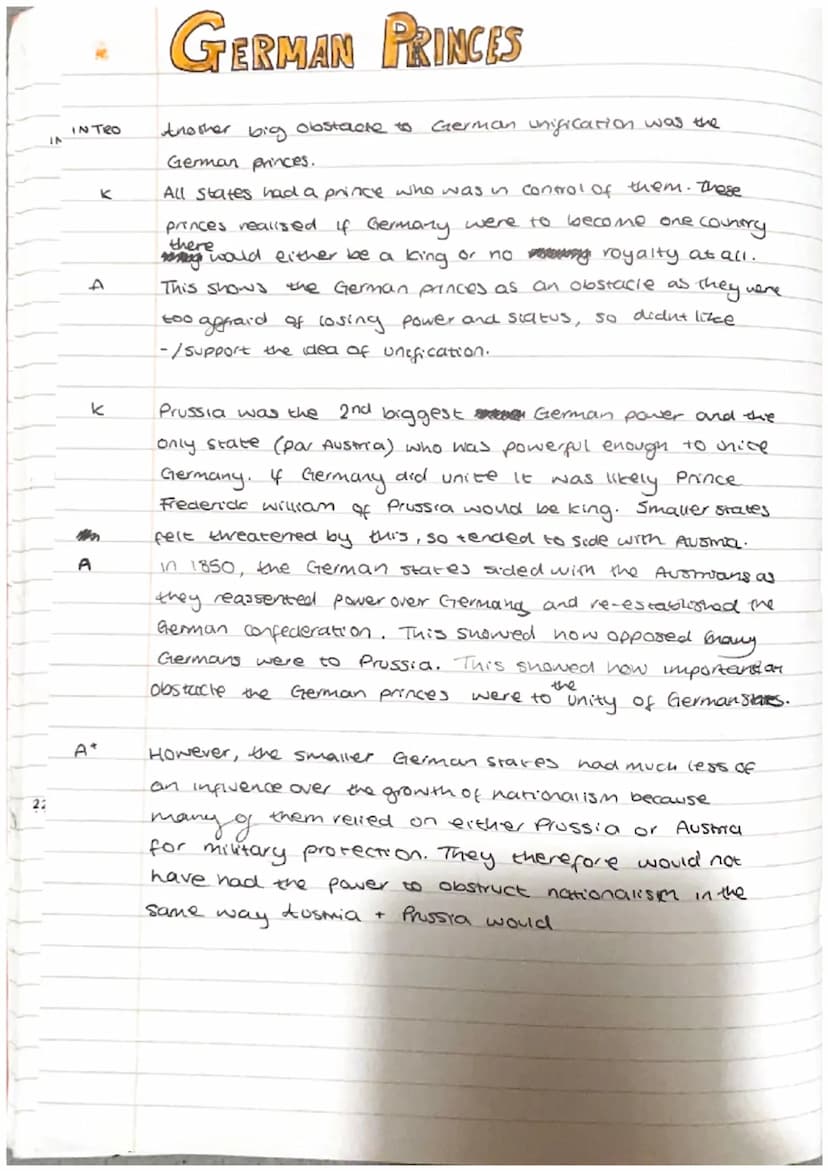 GERMAN PRINCES
INTRO Another big obstacle to German unification was the
IN
German princes.
K All states had a prince who was in control of them. These
princes realised if Germany were to become one country
there would either be a king or no royalty at all.
A This shows the German princes as an obstacle as they were
too affraid of losing power and status, so didnt like
-/support the idea of unification.
K Prussia was the 2nd biggest German power and the
only state (par Austria) who was powerful enough to unite
Germany. If Germany did unite it was likely Prince
Frederick William of Prussia would be king. Smaller states
felt threatened by this, so tended to side with Austria.
A In 1850, the German states sided with the Austrians as
they reassented power over Germany and re-established the
German confederation. This showed how opposed many
Germans were to Prussia. This showed how important an
obstacle the German princes were to the unity of German states.
A* However, the smaller German states had much less of
an influence over the growth of nationalism because
22
many of them relied on either Prussia or Austria
for military protection. They therefore would not
have had the power to obstruct nationalism in the
same way Austria + Prussia would